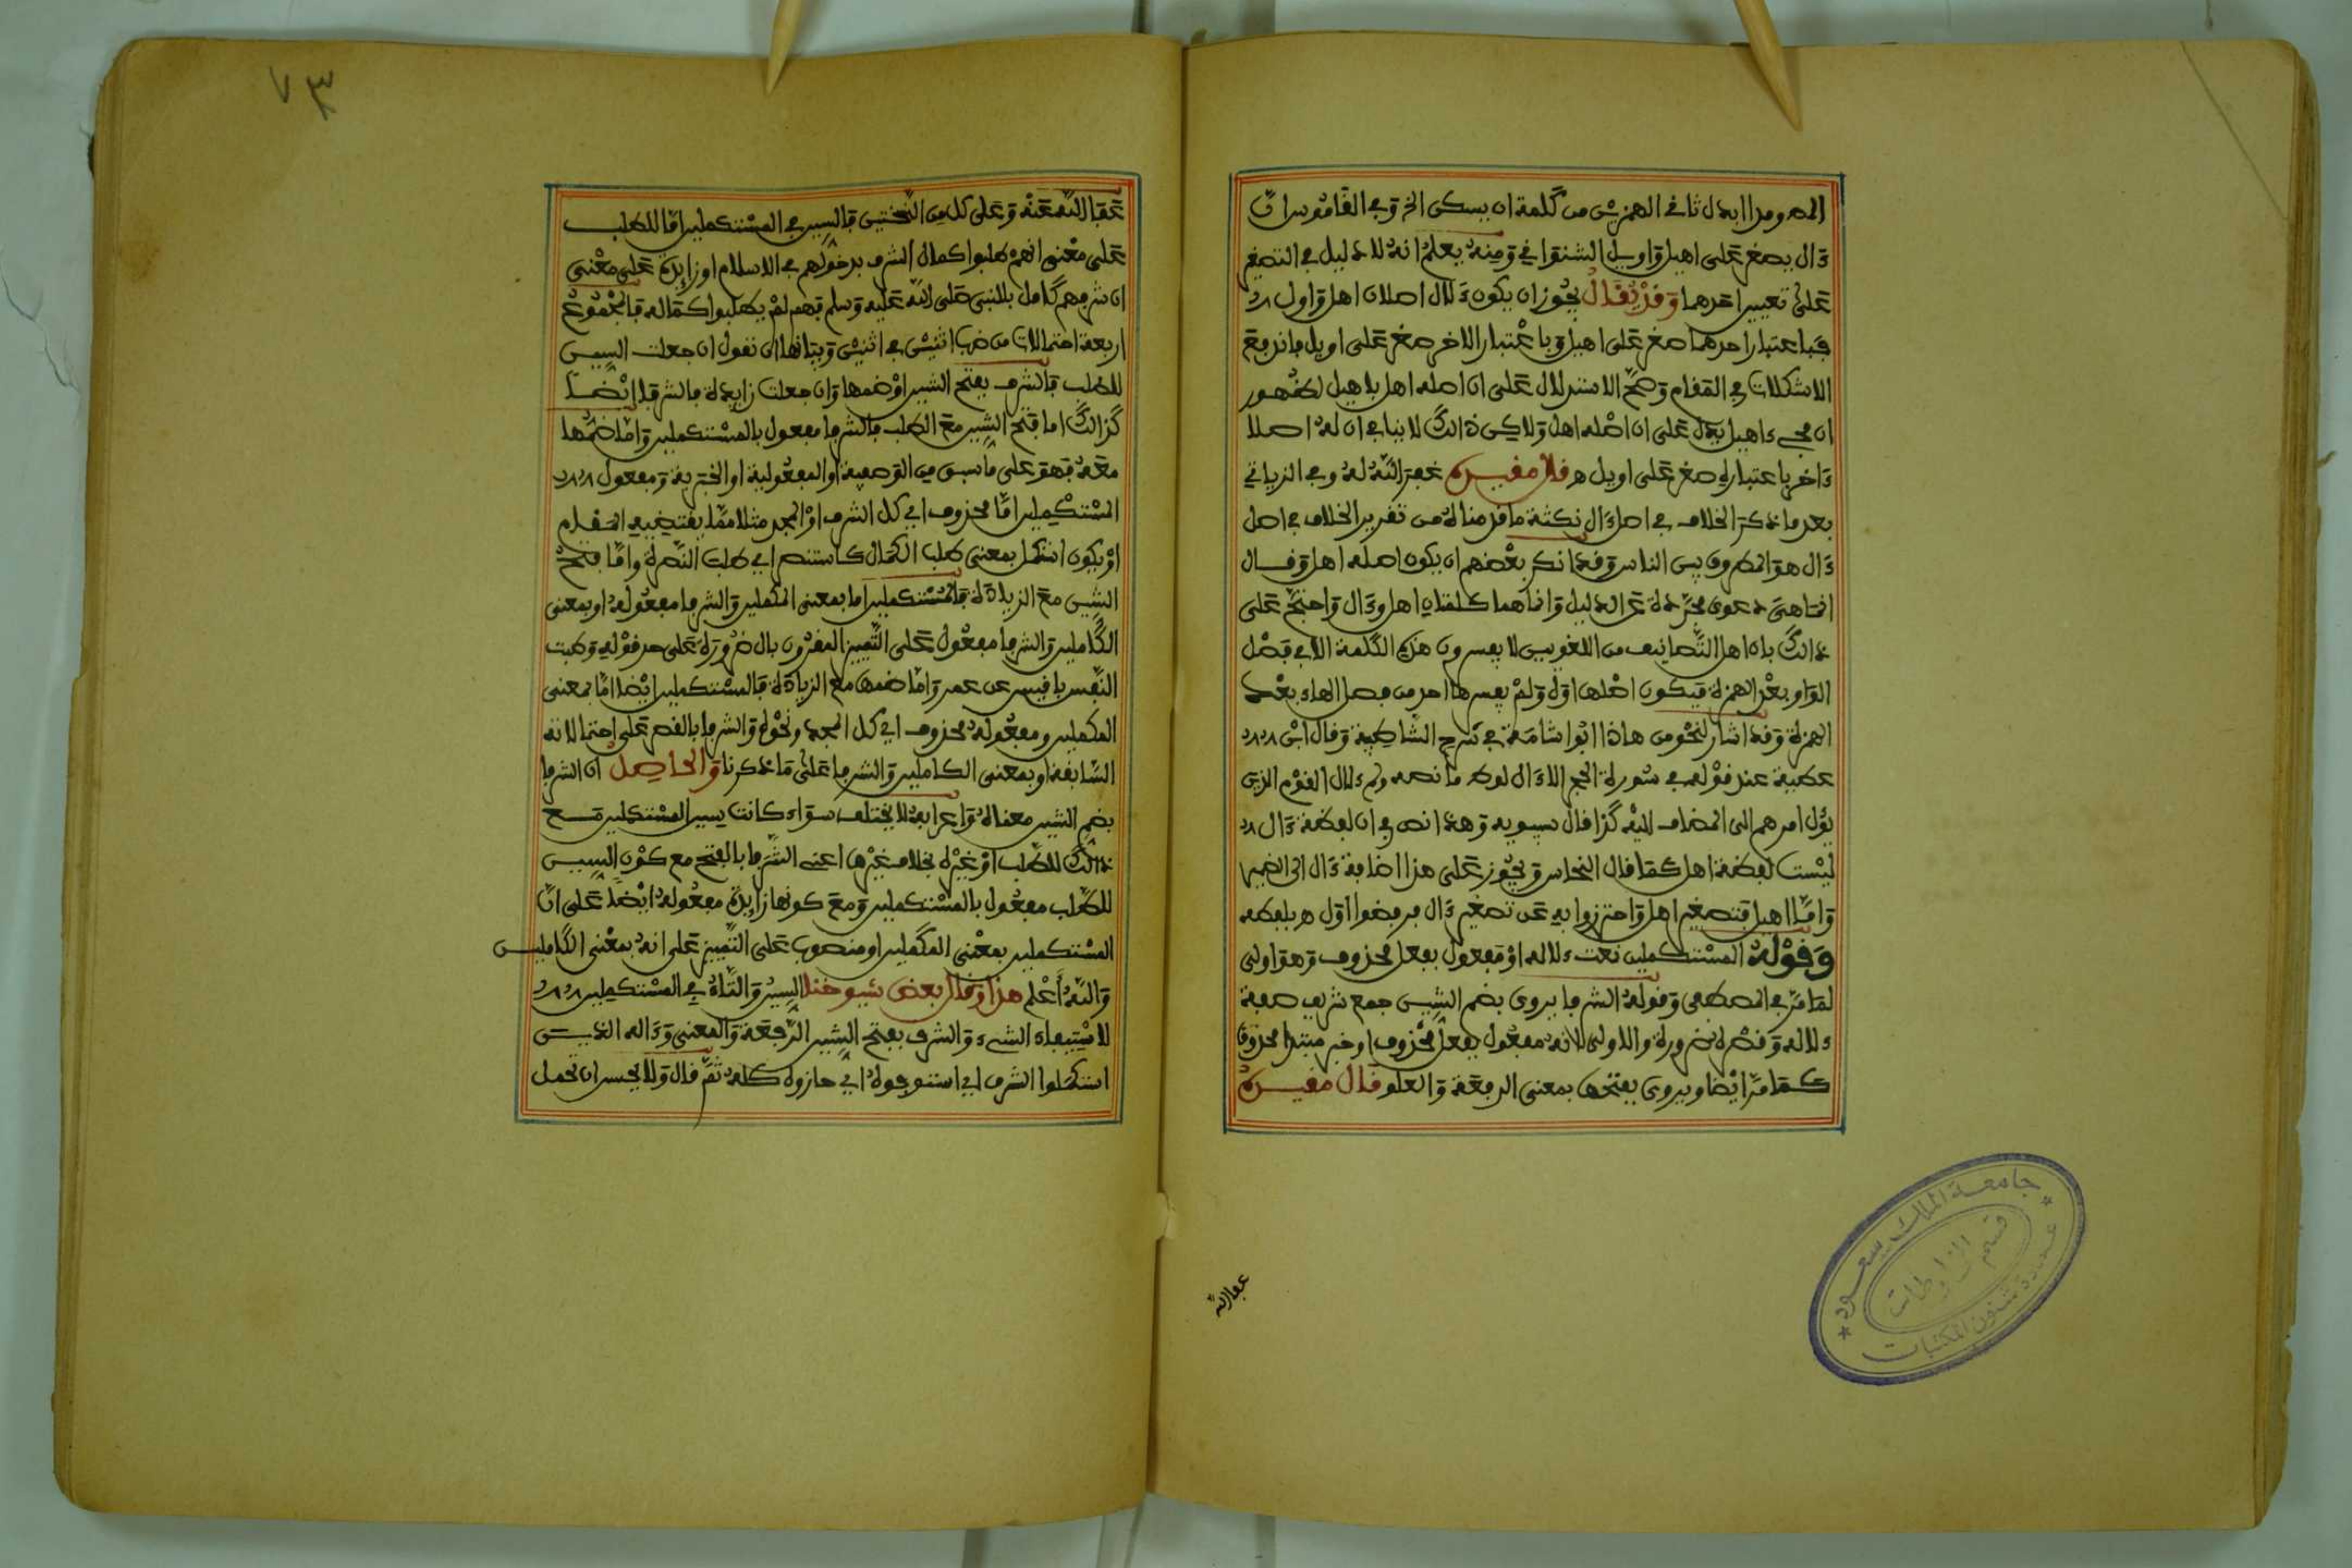 المد ومدا ابدل ثاني الهمزين من كلمة ان يسكن الخ وفي القاموس ان
ءال يصغر على اهيل واويل الشنواني ومنه يعلم انه لا دليل في التصغير
على تعيين احدهما وقد يقال يجوز ان يكون ءلال اصلان اهل واول
فباعتبار احدهما صغر على اهيل وباعتبار الاخر صغر على اويل فاندفع
الاشكلات في المقام وصح الاستدلال على ان اصله اهل باهيل لظهور
ان مجيء اهيل يدل على ان اصله اهل ولاكن ذالك لا ينافي ان له اصلا
ءاخر باعتباره صغر على اويل ه قال مقيده غفر الله له وفي الزياتي
بعد ما ذكر الخلاف في اصل ءال نكتة ما قدمناه من تقرير الخلاف في اصل
ءال هو المطروق بين الناس وقد انكر بعضهم ان يكون اصله اهل وقال
انما هي دعوى مجردة عن الدليل وانما هما كلمتان اهل وءال واحتج على
ذالك بان اهل التصانيف من اللغويين لا يفسرون هذه الكلمة الا في فصل
الواو بعد الهمزة فيكون اصلها اول ولم يفسرها احد من فصل الهاء بعد
الهمزة وقد اشار لنحو من هاذا ابوا شامة في شرح الشاطبية وقال ابن
عطية عند قوله في سورة الحجر الا ءال لوط ما نصه ولم ءلال القوم الذي
يؤل امرهم الى المضاف اليه كذا قال سيبويه وهذا نص في ان لفظة ءال
ليست لفظة اهل كما قال النحاس ويجوز على هذا اضافة ءال الى الضمير
واما اهيل فتصغير اهل واحترزوا به عن تصغير ءال فرفضوا اول ه بلفظه
وقوله المستكملين نعت ءلاله او مفعول بفعل محذوف وهو اولى
لما مر في المصطفى وقوله الشرفا يروى بضم الشين جمع شريف صفة
ءلاله وقصره ضرورة والاولى لانه مفعول بفعل محذوف او خبر مبتدا محذوف
كما مر ايضا ويروى بفتحها بمعنى الرفعة والعلو قال مقيده
عفا الله
جامعة الملك سعود
قسم المخطوطات
عمادة شئون المكتبات
٧٣
عفا الله عنه وعلى كل من النختين فالسين في المستكملين اما للطلب
على معنى انهم طلبوا كمال الشرف بدخولهم في الاسلام او زايدة على معنى
ان شرفهم كامل بالنبي صلى الله عليه وسلم فهم لم يطلبوا كماله فالمجموع
اربعة احتمالات من ضرب اثنين في اثنين وبيانها ان نقول ان جعلت السين
للطلب فالشرف بفتح الشين او ضمها وان جعلت زايدة فالشرفا ايضا
كذالك اما فتح الشين مع الطلب فالشرفا مفعول بالمستكملين واما ضمها
معه فهو على ما سبق من الوصفية او المفعولية او الخبرية ومفعول
المستكملين اما محذوف اي كل الشرف او المجد مثلا مما يقتضيه المقام
او يكون استكمل بمعنى طلب الكمال كاستنصر اي طلب النصرة واما فتح
الشين مع الزيادة فالمستكملين اما بمعنى المكملين والشرفا مفعوله او بمعنى
الكاملين والشرفا مفعول على التمييز المقرون بال ضرورة على حد قوله وطبت
النفس يا قيس عن عمرو واما ضمها مع الزيادة فالمستكملين ايضا اما بمعنى
المكملين ومفعوله محذوف اي كل المجد ونحوه والشرفا بالقصر على احتمالاته
السابقة او بمعنى الكاملين والشرفا على ما ذكرنا والحاصل ان الشرفا
بضم الشين معناه واعرابه لا يختلف سواء كانت سين المستكملين مع
ذالك للطلب او غيره بخلاف غيرها اعني الشرفا بالفتح مع كون السين
للطلب مفعول بالمستكملين ومع كونها زايدة مفعوله ايضا على ان
المستكملين بمعنى المكملين او منصوب على التمييز على انه بمعنى الكاملين
والله اعلم هذا وقال بعض شيوخنا السين والتاء في المستكملين
لاستيفاء الشيء والشرف بفتح الشين الرفعة والمعنى وءاله الذين
استكملوا الشرف اي استوجبوه اي حازوه كله ثم قال ولا يحسن ان تحمل